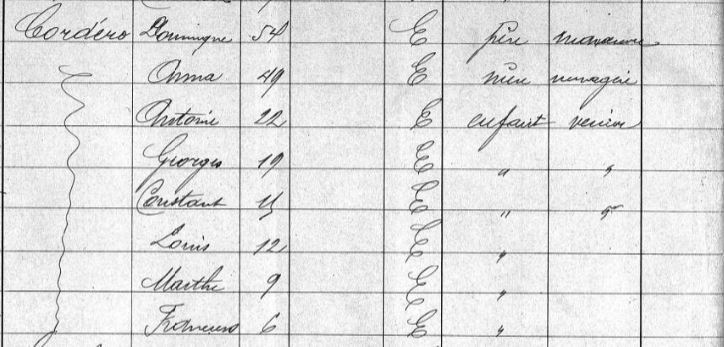 Cordéro Dominique 54 E père manœuvre
Anna 49 E mère ménagère
Antoine 22 E enfant verrier
Georges 19 E " "
Constant 15 E " "
Louis 12 E "
Marthe 9 E "
6 E "